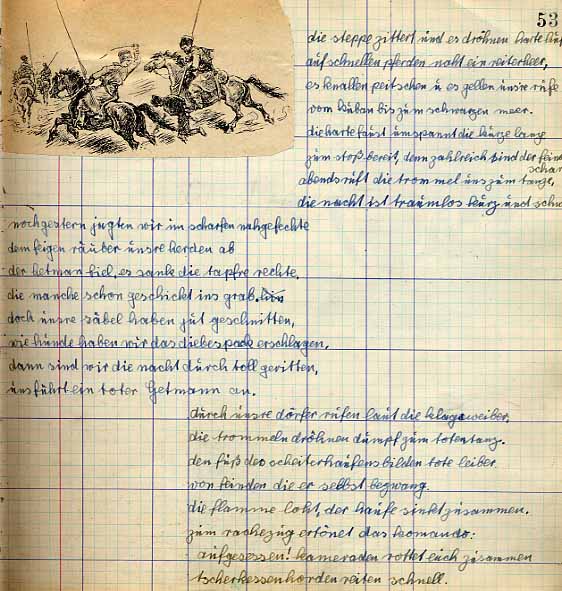 53
die steppe zittert und es dröhnen harte huf
auf schnellen pferden naht ein reiterheer,
es knallen peitschen u es gellen unsre rufe
vom kuban bis zum schwarzen meer.
die harte faust umspannt die kurze lanze
zum stoß bereit, denn zahlreich sind der fein
schar
abends ruft die trommel uns zum tanze,
die nacht ist traumlos kurz und schw
noch gestern jagten wir im scharfen nahgefechte
dem feigen räuber unsre herden ab
der hetman fiel, es sank die tapfre rechte,
die manche schon geschickt ins grab.
doch unsre säbel haben gut geschnitten,
wie hunde haben wir das diebespack erschlagen,
dann sind wir die nacht durch toll geritten,
uns führt ein toter Hetmann an.
durch unsre dörfer rufen laut die klageweiber,
die trommeln dröhnen dumpf zum totentanz.
den fuß des scheiterhaufens bilden tote leiber
von feinden die er selbst bezwang.
die flamme loht, der haufe sinkt zusammen.
zum rachezug ertönet das komando:
aufgesessen! kameraden rottet euch zusammen
tscherkessenhorden reiten schnell.